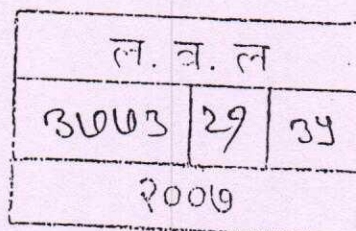 ल. व. ल
३७७३ २१ ३५
२००७